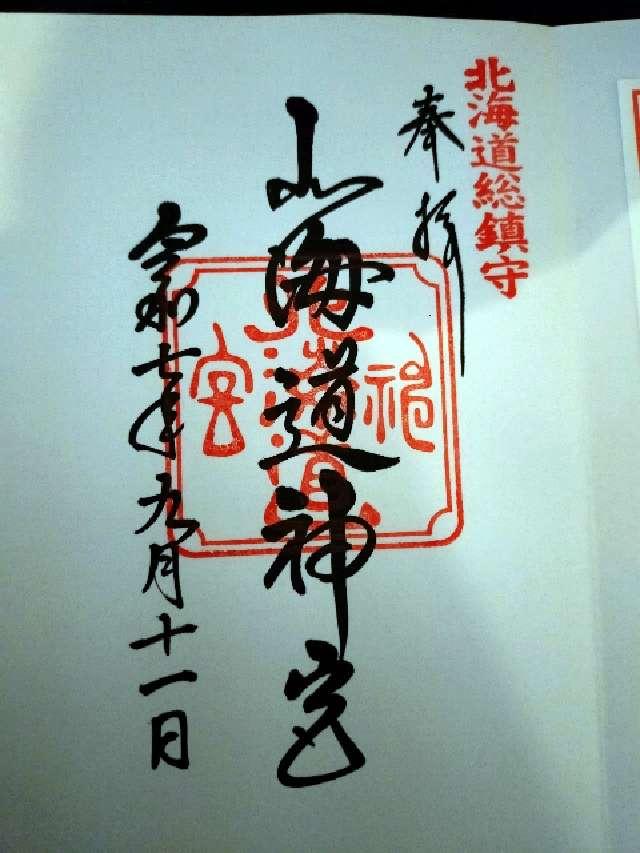 北海道総鎮守
奉拝
北海道神宮
令和七年九月十一日